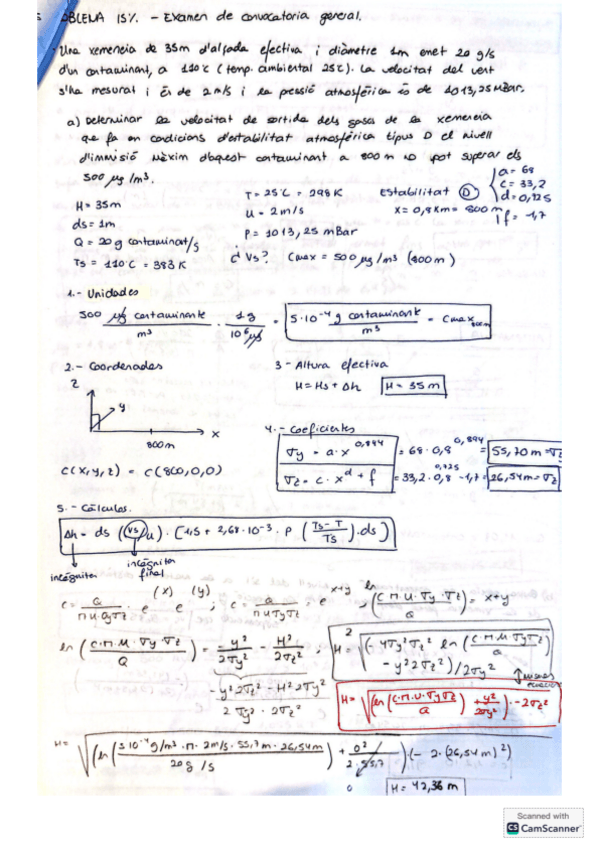 PROBLEMA 15%. - Examen de convocatoria general.
Una xemeneia de 35m d'alçada efectiva i diàmetre 1m emet 20 g/s
d'un contaminant, a 110ºC (temp. ambiental 25ºC). La velocitat del vent
s'ha mesurat i és de 2 m/s i la pessió atmosfèrica és de 1013,25 mBar.
a) Determinar la velocitat de sortida dels gasos de la xemeneia
que fa en condicions d'estabilitat atmosfèrica tipus D el nivell
d'immisió màxim d'aquest contaminant a 800m no pot superar els
500 µg/m³.
H = 35m
ds = 1m
Q = 20 g contaminant/s
Ts = 110ºC = 383 K
T = 25ºC = 298 K
u = 2 m/s
P = 1013,25 mBar
¿Vs? Cmax = 500 µg/m³ (800m)
Estabilitat D
x = 0,8 Km = 800 m
a = 68
c = 33,2
d = 0,725
f = -1,7
1.- Unidades
500 µg contaminante / m³ · 1g / 10⁶ µg = 5·10⁻⁴ g contaminant / m³ = Cmax 800m
2.- Coordenadas
z
y
x
800m
C(x,y,z) = C(800,0,0)
3 - Altura efectiva
H = Hs + Δh H = 35m
4.- Coeficientes
σy = a·x^0,894 = 68·0,8^0,894 = 55,70 m = σy
σz = c·x^d + f = 33,2·0,8^0,725 - 1,7 = 26,54 m = σz
5.- Cálculos.
Δh = ds (vs/u) · [1,5 + 2,68·10⁻³ · P (Ts-T / Ts) · ds]
incógnita
incógnita final
(x) (y)
C = Q / π·u·σy·σz · e · e ; C = Q / π u σy σz = e^x+y ; ln (C·π·u·σy·σz / Q) = x+y
ln (C·π·u·σy·σz / Q) = -y² / 2σy² - H² / 2σz² ;
-y²2σz² - H²2σy² / 2σy² · 2σz²
H = √((-4σy²σz² ln (C·π·u·σyσz / Q) - y²2σz²) / 2σy²)
H = √((ln (C·π·u·σyσz / Q) + y² / 2σy²) · -2σz²
H = √((ln (5·10⁻⁴ g/m³ · π · 2m/s · 55,7m · 26,54m / 20g/s) + 0² / 2·55,7) (-2·(26,54 m)²)
0
H = 42,36 m
Scanned with
CS CamScanner